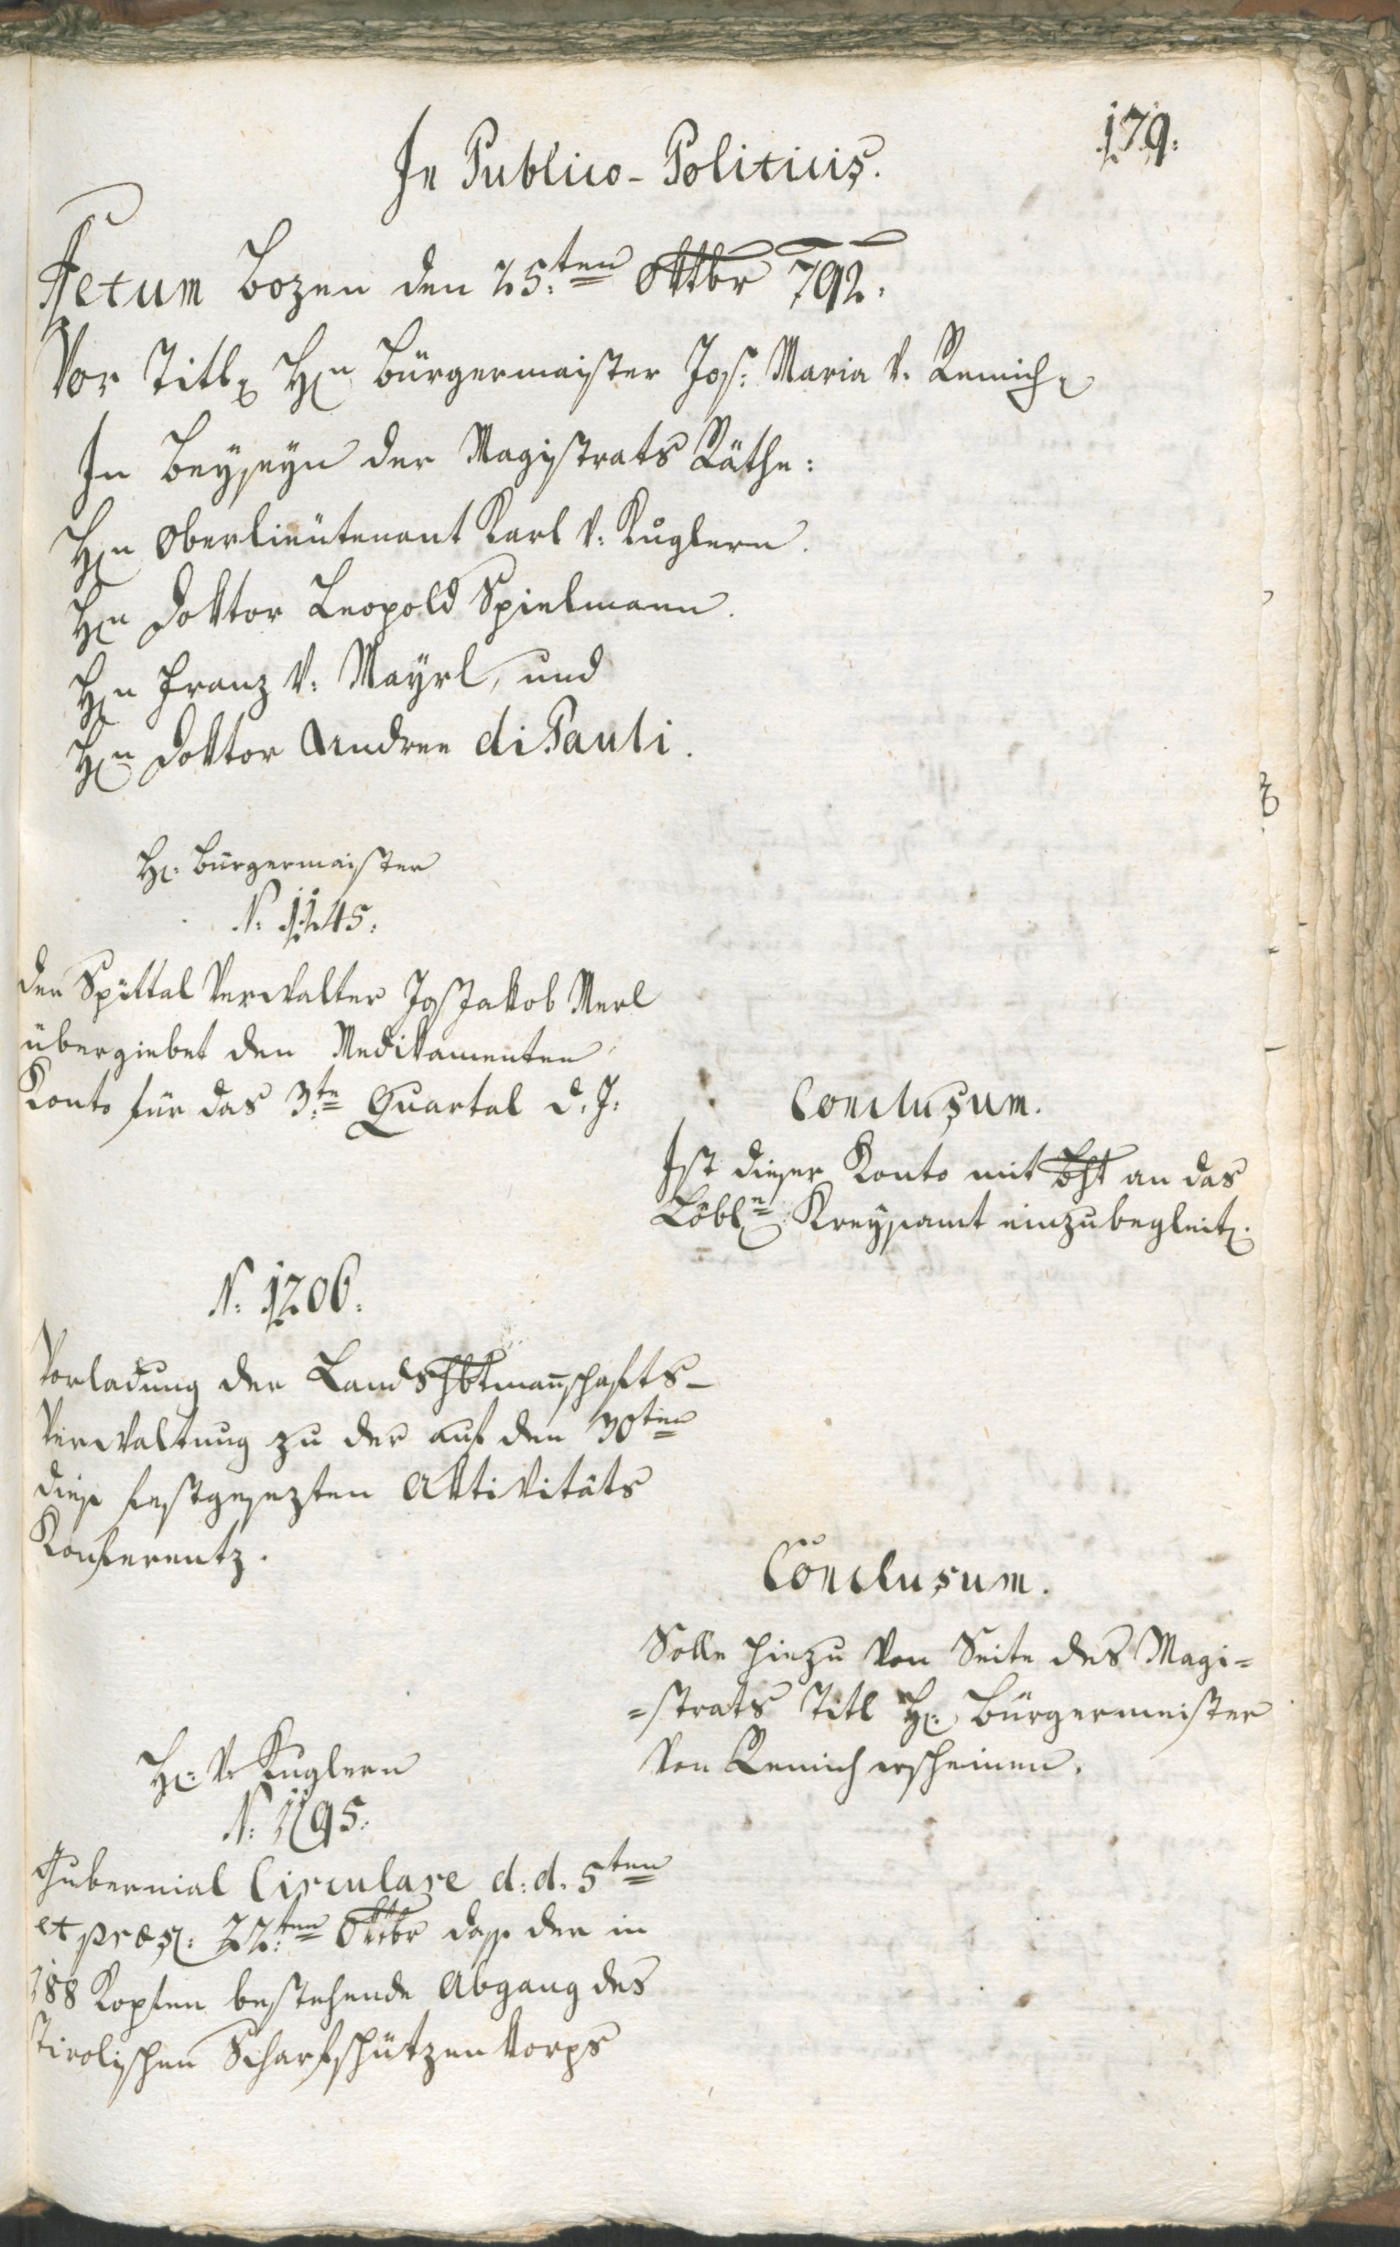 179.
In Publico-Politicis.
Actum Bozen den 25.ten Oktbr 792.
Vor Titl. Hrn Bürgermaister Jos: Maria v. Remich
In Beyseyn der Magistrats Räthe:
Hrn Oberlieutenant Karl v: Kuglern.
Hrn Doktor Leopold Spielmann.
Hrn Franz v: Mayrl, und
Hrn Doktor Andree di Pauli.
Hr: Bürgermaister
N: 1145:
Der Spittal Verwalter Jos Jakob Merl
übergiebet den Medikamenten
Konto für das 3:te Quartal d. J:
Conclusum.
Ist dieser Konto mit Bht an das
Löbln Kreysamt einzubegleit.
N: 1206.
Vorladung der Landshbtmanschafts-
Verwaltung zu der auf den 30ten
dieß festgesezten Aktivitäts
Konferentz.
Conclusum.
Solle hinzu von Seite des Magi=
=strats Titl Hr: Bürgermeister
von Remich erscheinen.
Hr: v: Kuglern
N: 1195:
Gubernial Circulare d: d. 5ten
et præs: 22:ten Oktbr daß der in
188 Kopfen bestehende Abgang des
Tirolischen Scharfschützen Korps